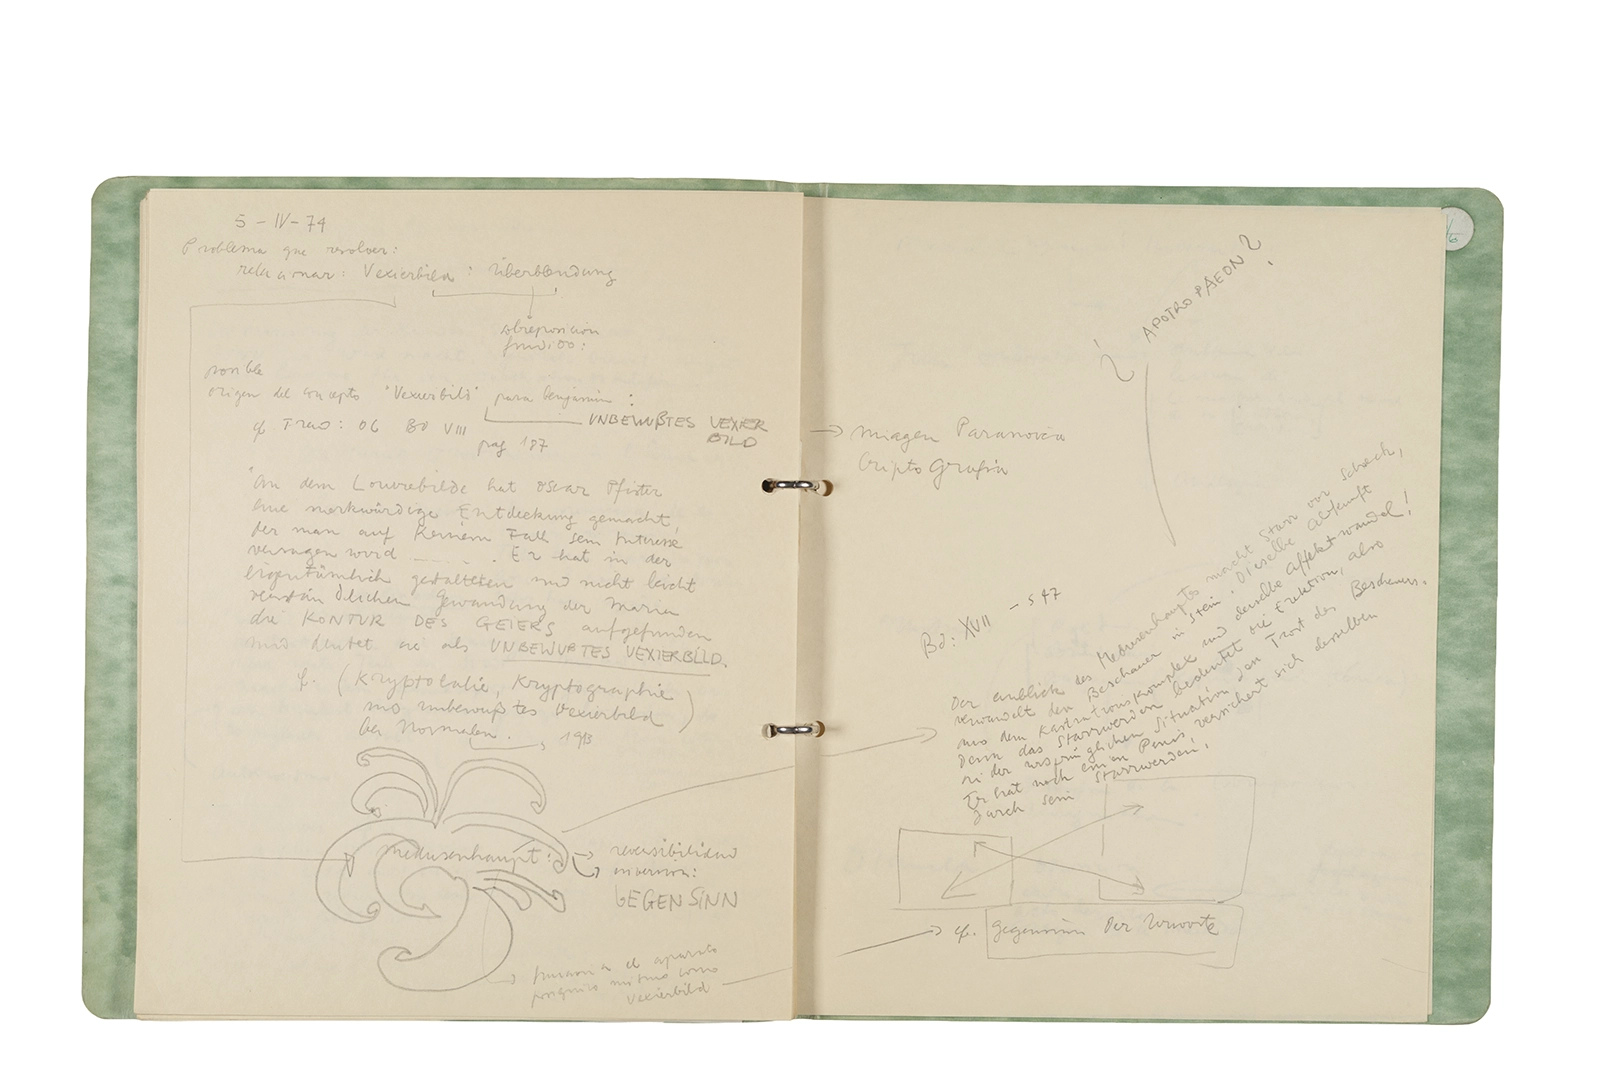 5 - IV - 74
Problema que resolver:
relacionar: Vexierbild : Überblendung
sobreposicion
fundido:
posible
origen del concepto "Vexierbild" para benjamin :
cf Freud: OC Bd VIII
UNBEWUßTES VEXIER
BILD
pag 187
"An dem Louvrebilde hat Oscar Pfister
eine merkwürdige Entdeckung gemacht,
der man auf keinem Fall sein Interesse
versagen wird ....... Er hat in der
eigentümlich gestalteten und nicht leicht
verständlichen Gewandung der Maria
die KONTUR DES GEIERS aufgefunden
und deutet sie als UNBEWUßTES VEXIERBILD.
cf. (Kryptolalie, Kryptographie
und unbewußtes Vexierbild
bei Normalen. , 1913)
medusenhaupt:
reversibilidad
inversion:
GEGENSINN
el aparato
psiquico mismo como
Vexierbild
¿ APOTROPAEON ?
imagen Paranoica
Criptografia
Bd: XVII - S 47
Der anblick des Medusenhaupts macht starr vor schreck,
verwandelt den Beschauer in stein. Dieselbe abkunft
aus dem Kastrationskomplex und derselbe affektwandel!
Denn das starrwerden bedeutet die Erektion, also
in der ursprünglichen situation den Trost des Beschauers.
Er hat noch einen Penis, versichert sich desselben
durch sein starrwerden.
cf. Gegensinn Der Urworte